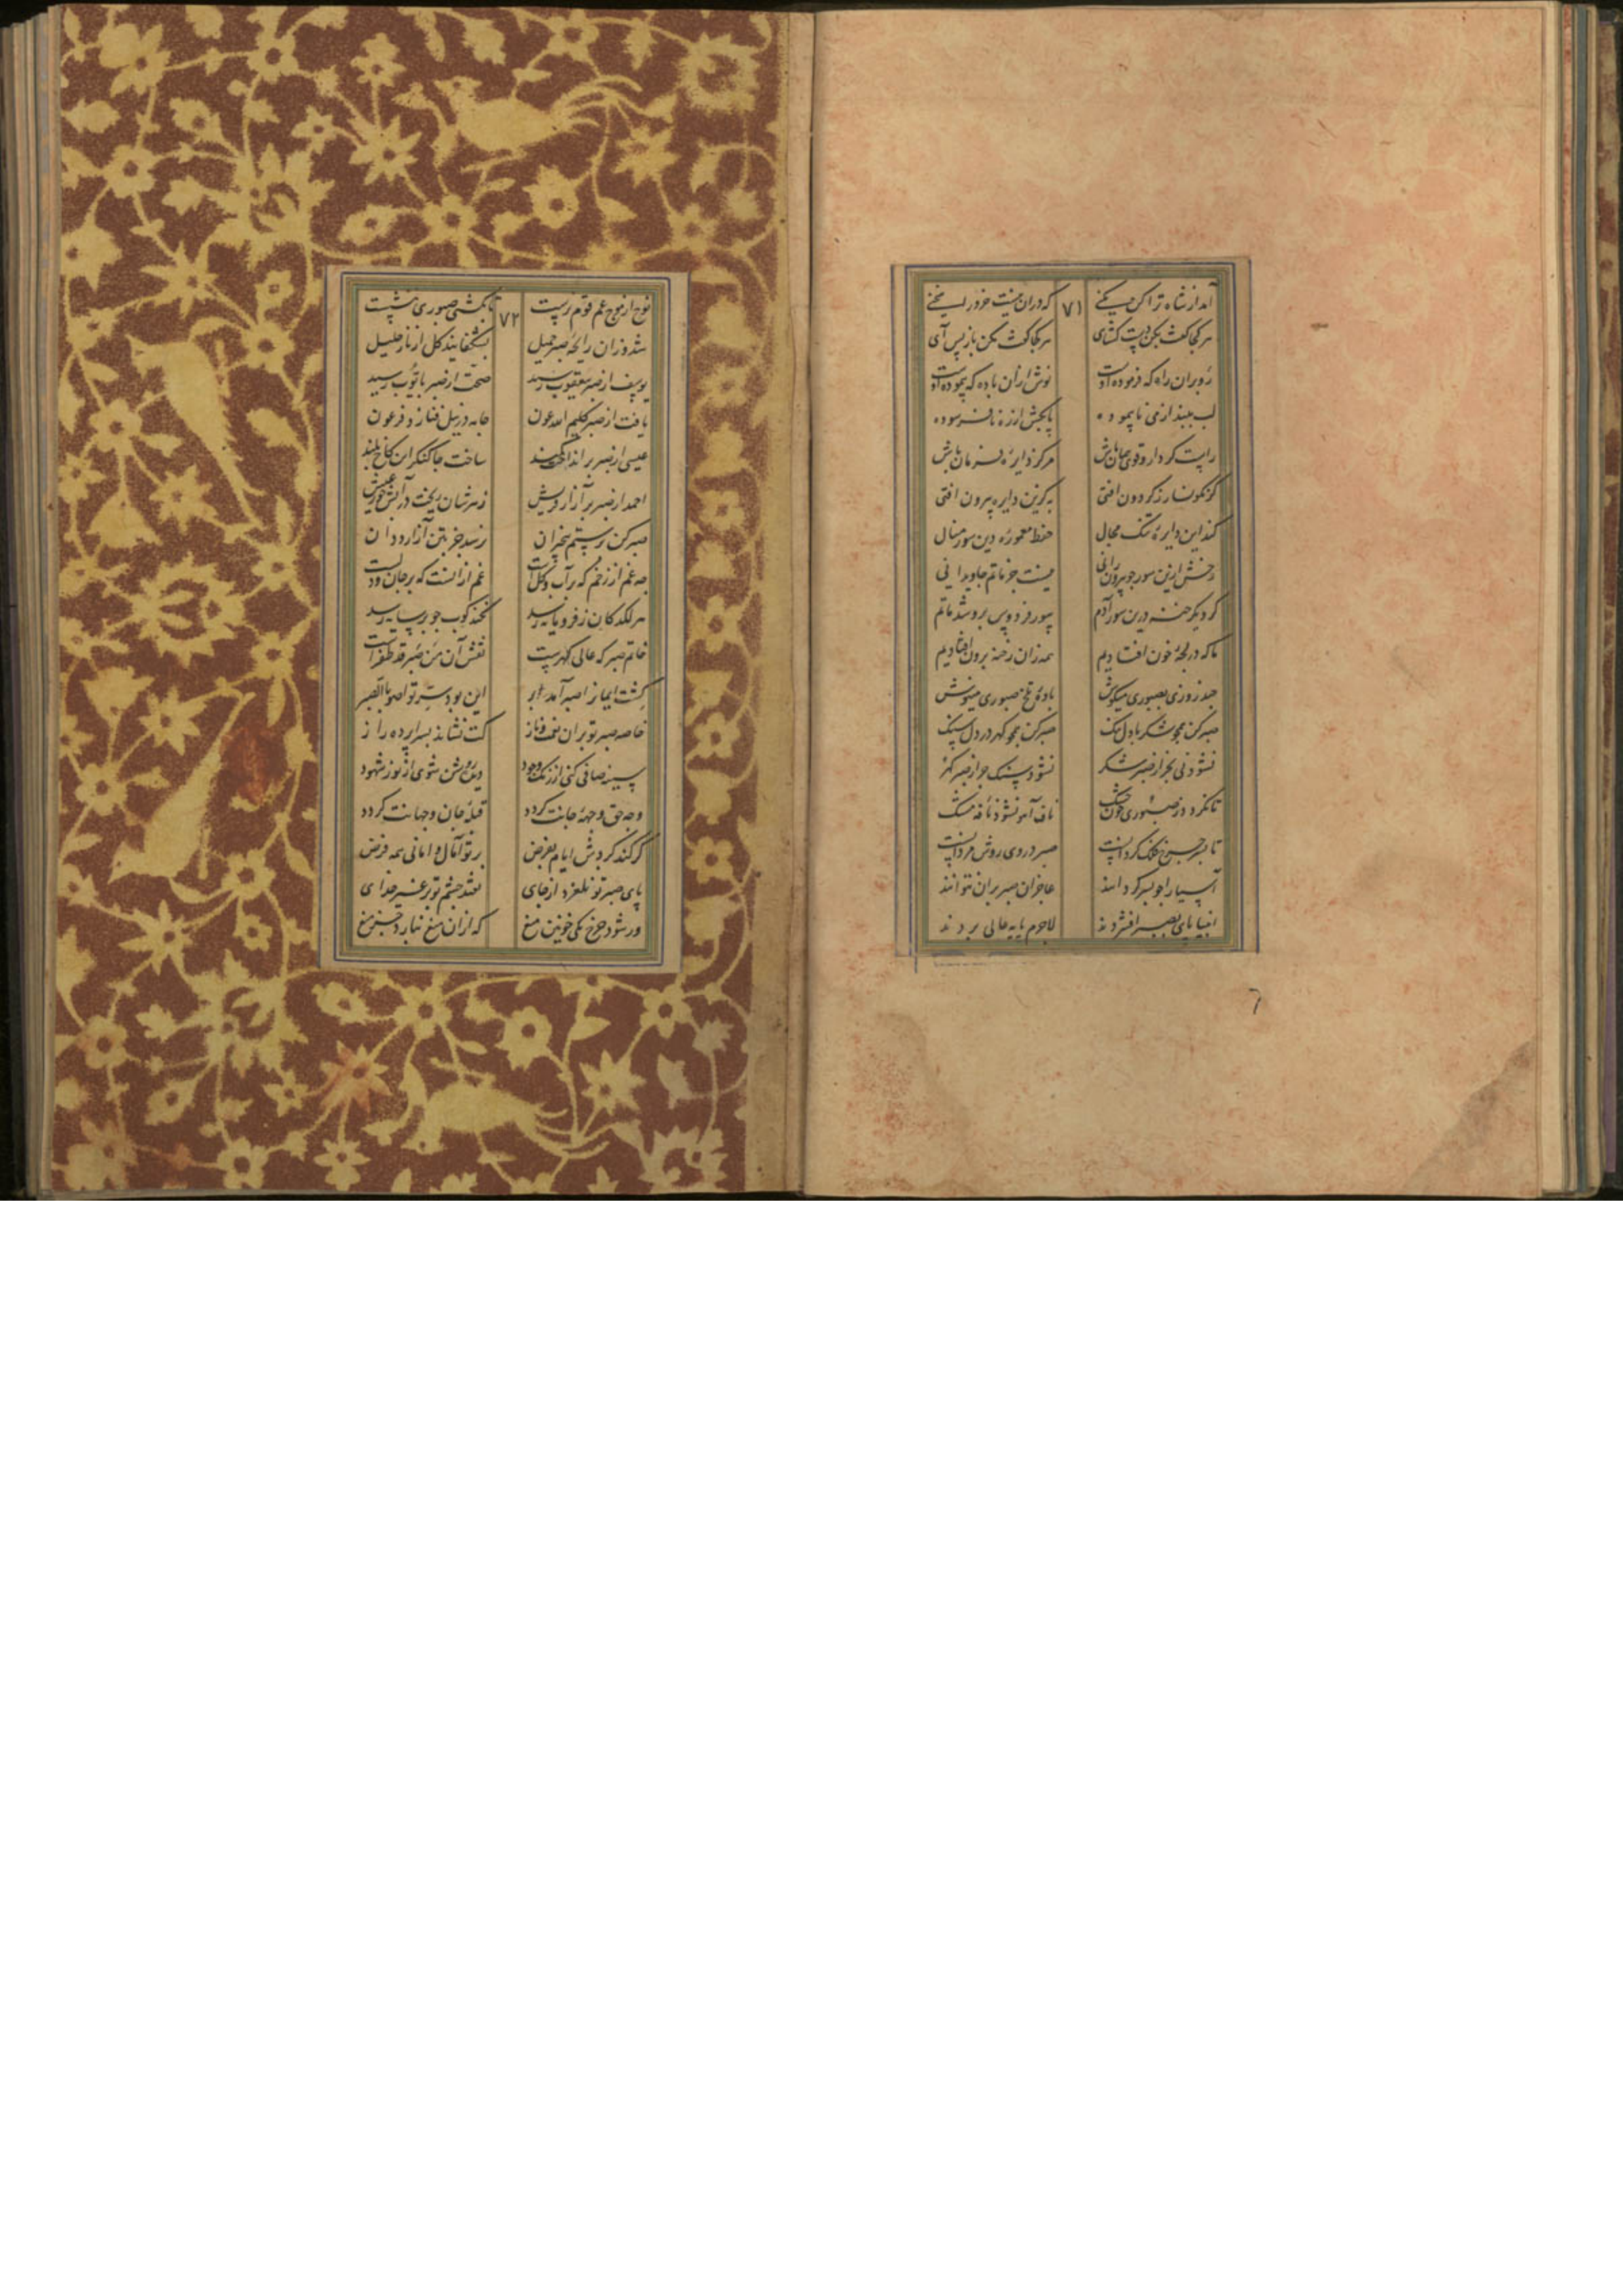 آمد از شاه ترا کن مکنی
که دران نیست خرد را سخنی
۷۱
هر کجا گفت بکن دست گشای
هر کجا گفت مکن باز پس آی
رو بران راه که فرموده اوست
نوش ازان باده که پیموده اوست
لب ببند از می ناپیموده
پا بکش از ره نافرسوده
راست کردار و قوی پیمان باش
مرکز دایره فرمان باش
گر نگونسار ز گردون افتی
به کزین دایره بیرون افتی
کند این دایره تنگ مجال
حفظ معموره دین سور مثال
رخش ازین سور چو بیرون رانی
نیست جز ماتم جاویدانی
کرد یکر خنه درین سور آدم
سور فردوس برو شد ماتم
ما که در لجه خون افتادیم
همه زان رخنه برون افتادیم
چند روزی بصبوری میکوش
باده تلخ صبوری مینوش
صبر کن همچو شکر با دل تنگ
صبر کن همچو گهر در دل سنگ
نشود نی بجز از صبر شکر
نشود سنگ جز از صبر گهر
تا نگردد ز صبوری خون خشک
ناف آهو نشود نافه مشک
تا بسر چرخ فلک گردانست
صبر در وی روش مردانست
آسیا را چو بسر گردانند
عاجزان صبر بران نتوانند
انبیا پای بصبر افشردند
لاجرم پایه عالی بردند
نوح از موج غم قوم نرست
تا بکشتی صبوری ننشست
۷۲
شد وزان رایحه صبر جمیل
بشکفانید گل از نار خلیل
یوسف از صبر بیعقوب رسید
صحت از صبر بایوب رسید
یافت از صبر کلیم الله عون
جامه در نیل فنا زد فرعون
عیسی از صبر بر انداخت کمند
ساخت جا کنگر این کاخ بلند
احمد از صبر بر آزار قریش
زهرشان ریخت در آبشخور عیش
صبر کن بر ستم بیخبران
نرسد جز بتن آزار ددان
چه غم از زخم که بر آب و گلست
غم ازانست که بر جان و دلست
هر لگد کان ز فرومایه رسد
نکند کوب چو بر سایه رسد
خاتم صبر که عالی گهرست
نقش آن من صبر قد ظفرست
کشت ایمان را صبر آمد ابر
این بود سر تواصوا بالصبر
خاصه صبر تو بران نعمت و ناز
کت نشاند بسراپرده راز
سینه صافی کنی از زنگ وجود
دیده روشن شوی از نور شهود
وجه حق وجهه جانت گردد
قبله جان و جهانت گردد
گر کند گردش ایام بفرض
بر تو آمال و امانی همه عرض
پای صبر تو نلغزد از جای
نفتد چشم تو بر غیر خدای
ور شود چرخ یکی خونین میغ
که ازان میغ نبارد جز تیغ